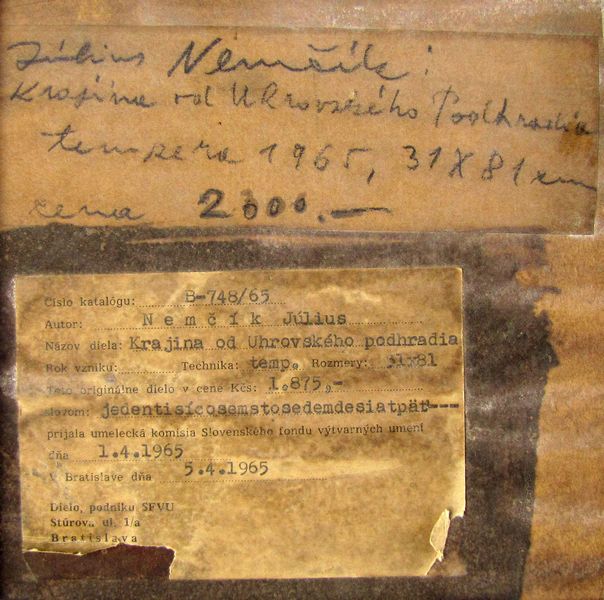 Július Nemčík:
Krajina od Uhrovského Podhradia
tempera 1965, 31X81 cm
cena 2000.—
Číslo katalógu: B-748/65
Autor: Nemčík Július
Názov diela: Krajina od Uhrovského podhradia
Rok vzniku: Technika: temp. Rozmery: 31x81
Toto originálne dielo v cene Kčs: 1.875,-
slovom: jedentisícosemstosedemdesiatpäť---
prijala umelecká komisia Slovenského fondu výtvarných umení
dňa 1.4.1965
V Bratislave dňa 5.4.1965
Dielo, podniku SFVU
Štúrova ul. 1/a
Bratislava